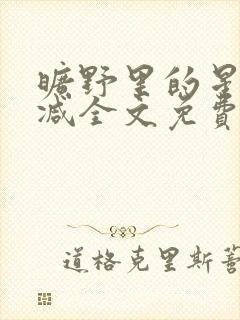 曠野里的星
减全文免費
道格克里斯蒂